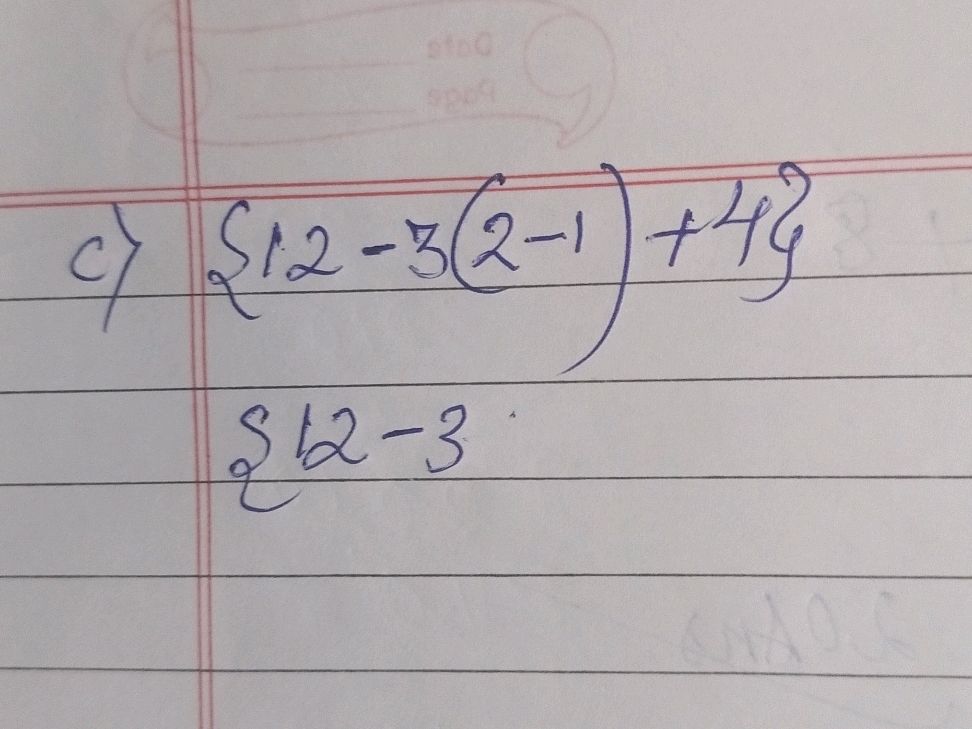 Date
Page
c) {12-3(2-1)+4}
{12-3